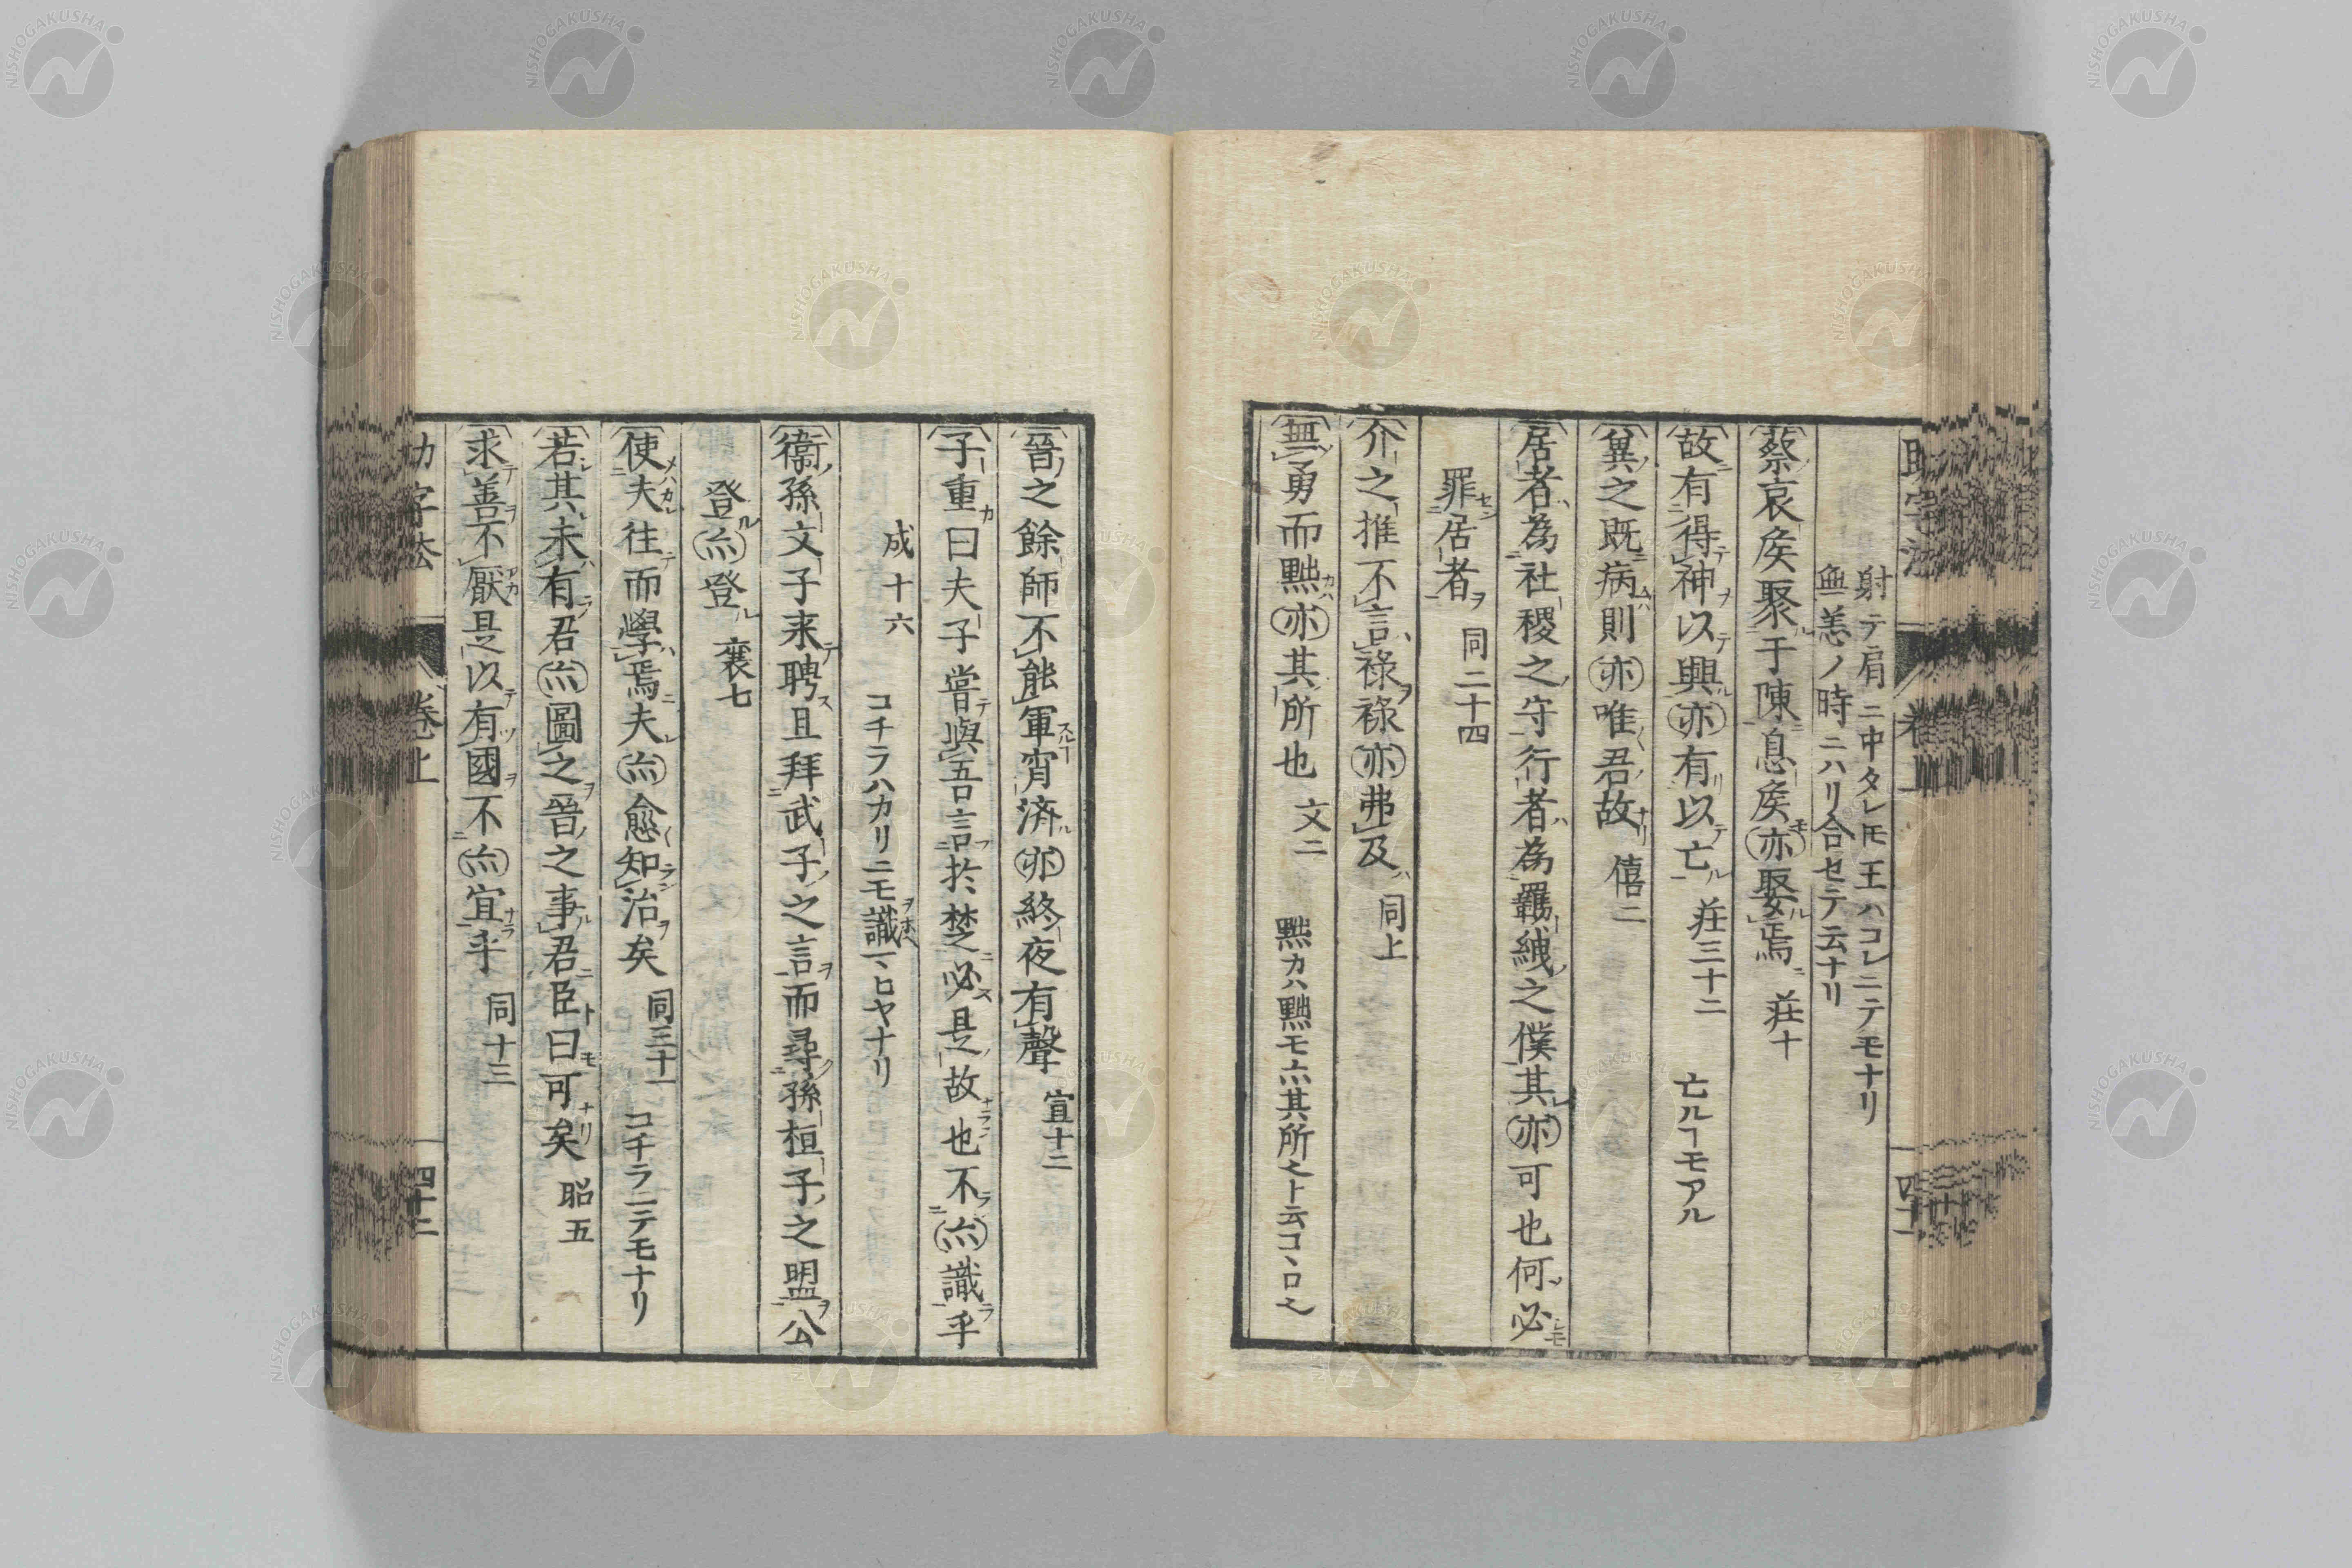 射テ肩ニ中タレ𪜈王ハコレニテモナリ
無恙ノ時ニハリ合セテ云ナリ
蔡哀侯娶于陳息侯亦娶焉 荘十
故有得神以興亦有以亡 荘三十二 亡ルヿモアル
冀之既病則亦唯君故 僖二
居者為社稷之守行者為羈絏之僕其亦可也何必
罪居者 同二十四
介之推不言禄禄亦弗及 同上
無勇而黜亦其所也 文二 黜カハ黜モ亦其所之ト云コヽロ之
晉之餘師不能軍宵済亦終夜有聲 宣十二
子重曰夫子嘗與吾言於楚必是故也不亦識乎
成十六 コチラハカリニモ識ヿヒロヤナリ
衞孫文子来聘且拜武子之言而尋孫桓子之盟公
登亦登 襄七
使夫往而學焉夫亦愈知治矣 同三十一 コチラニテモナリ
若其未有君亦圖之晉之事君臣曰可矣 昭五
求善不厭是以有國不亦宜乎 同十三
助字法 卷上 四十二
NISHOGAKUSHA